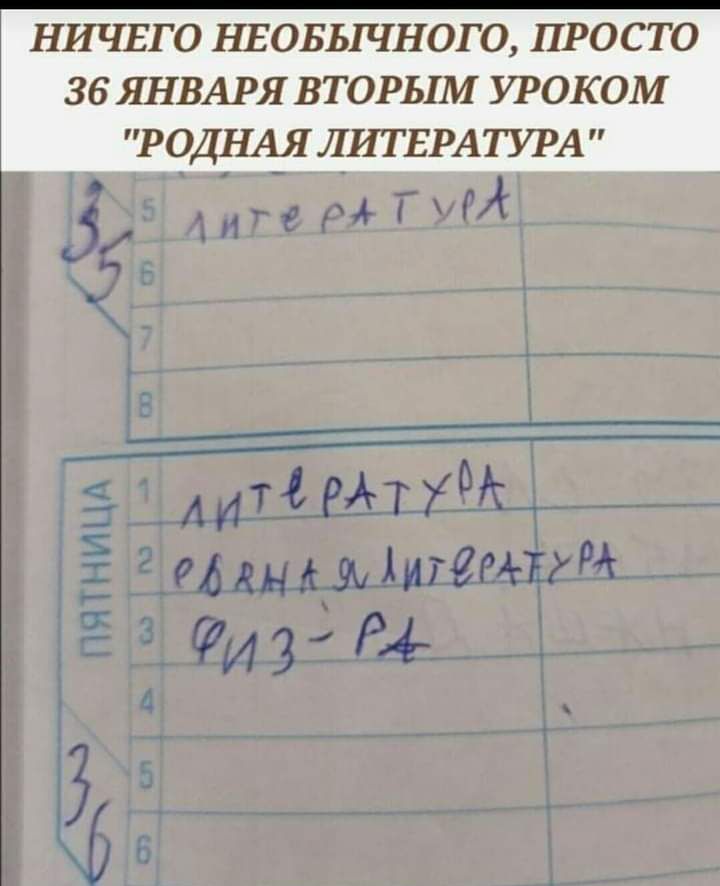 НИЧЕГО НЕОБЫЧНОГО, ПРОСТО
36 ЯНВАРЯ ВТОРЫМ УРОКОМ
"РОДНАЯ ЛИТЕРАТУРА"
35
5 литература
6
7
8
ПЯТНИЦА
1 литература
2 родная литература
3 физ-ра
4
5
36
6